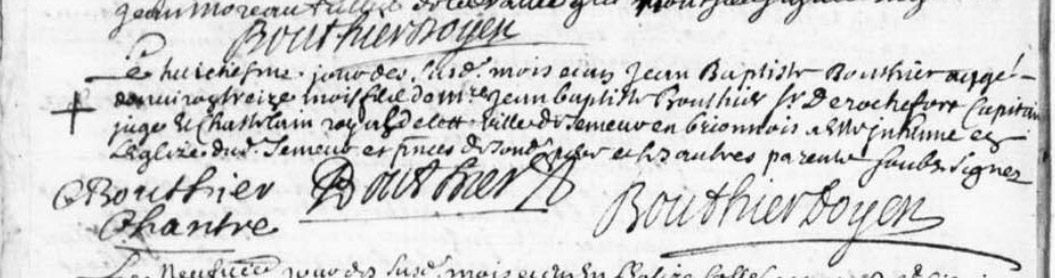 Jean Moreau
Bouthier doyen
Le huictiesme jour des susd. mois et an Jean Baptiste Bouthier aagé
denviron treize mois fils de mre Jean baptiste Bouthier sr De rochefort Capitai
juge & Chastelain royal de lad. ville de Semeur en brionnois a esté inhumé en
L'eglize dud. Semeur et pnces de sond. pere et des autres parents soubsignez
Bouthier Bouthier Bouthier doyen
Chantre
Le Neufie jour des susd. mois et an En l'eglize